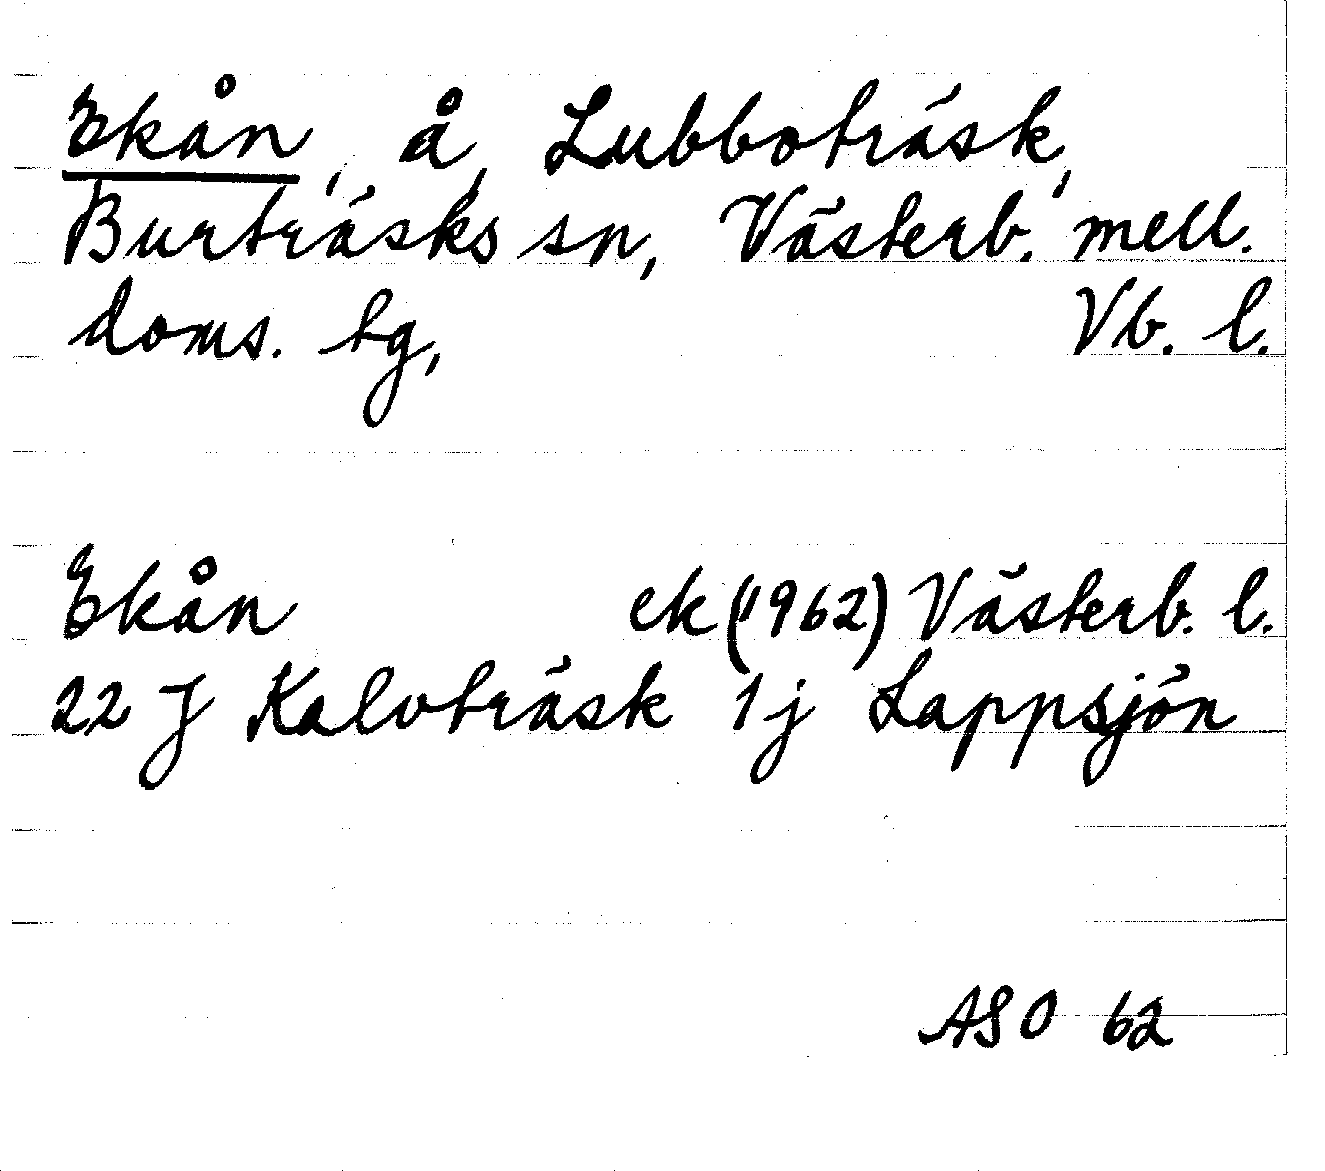 Ekån, å, Lubboträsk,
Burträsks sn, Västerb. mell.
doms. tg, Vb. l.
Ekån ek (1962) Västerb. l.
22 J Kalvträsk 1 j Lappsjön
ASO 62